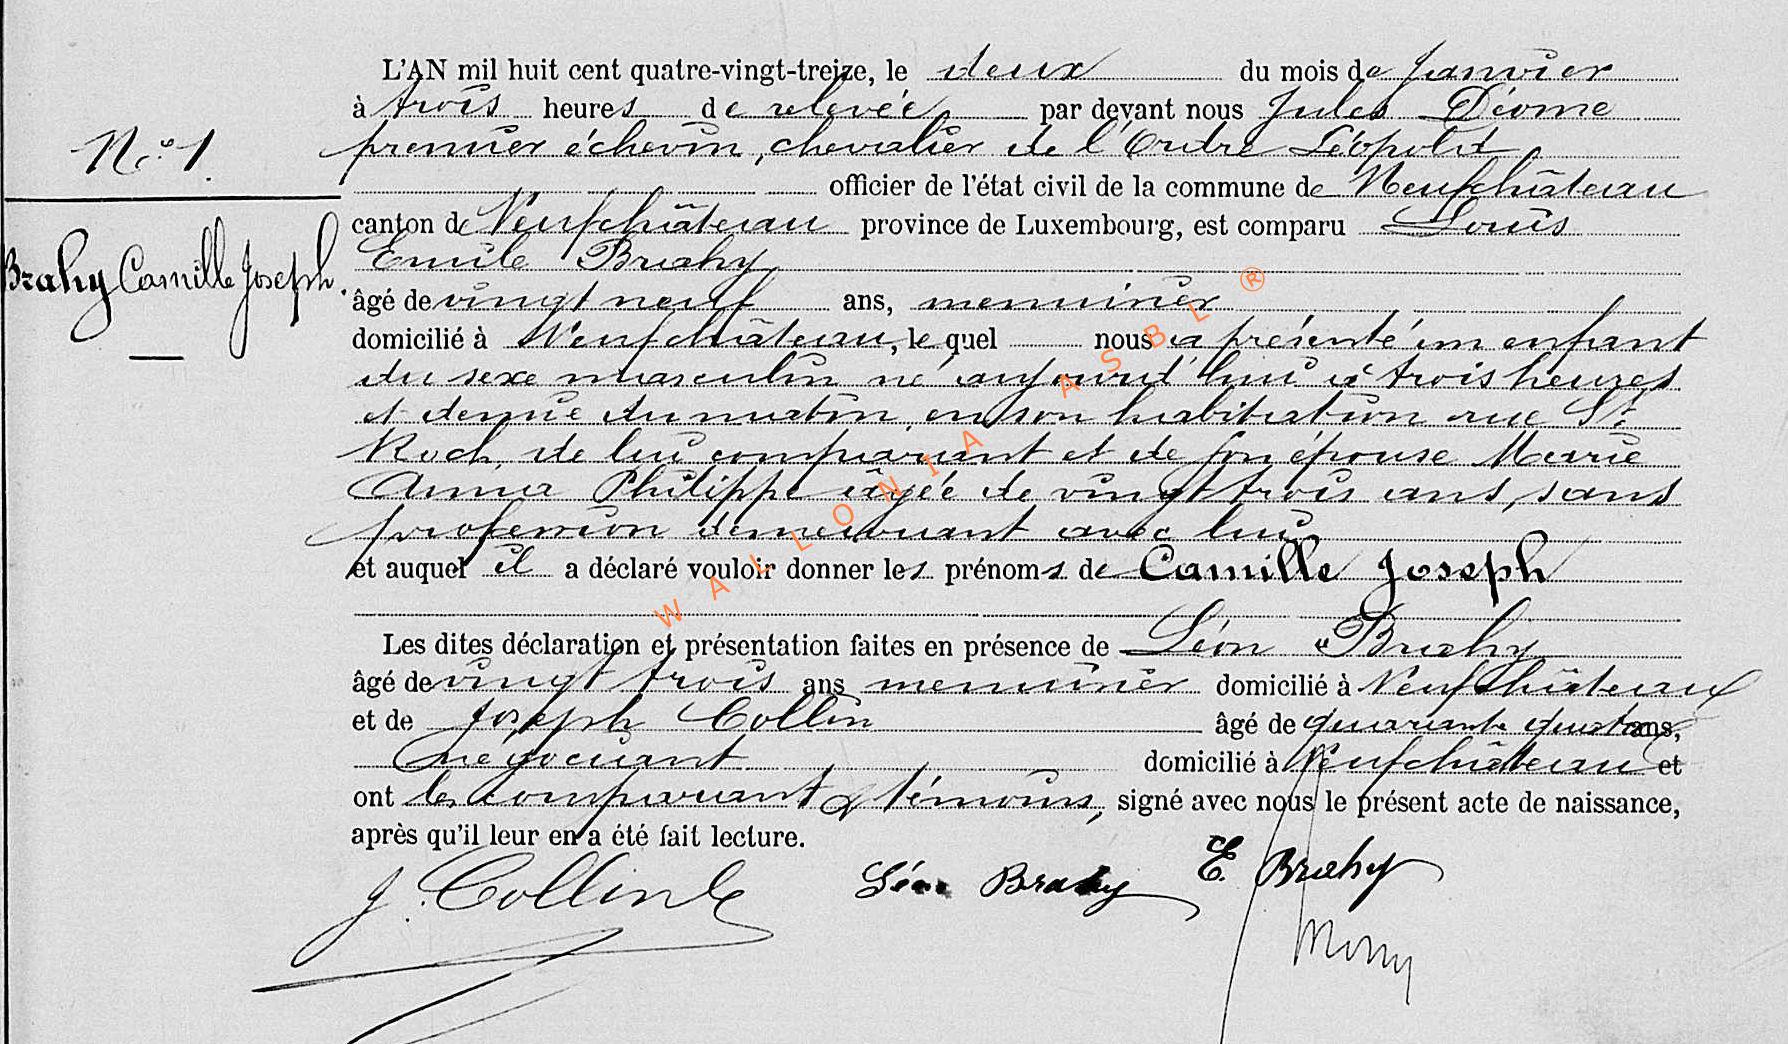 L'AN mil huit cent quatre-vingt-treize, le deux du mois de Janvier
à trois heures de relevée par devant nous Jules Déome
N.o 1.
premier échevin, chevalier de l'Ordre Léopold
officier de l'état civil de la commune de Neufchâteau
canton de Neufchâteau province de Luxembourg, est comparu Louis
Brahy Camille Joseph.
Emile Brahy
âgé de vingt neuf ans, menuisier
domicilié à Neufchâteau, le quel nous a présenté un enfant
du sexe masculin né aujourd'hui à trois heures
et demie du matin, en son habitation rue St
Roch, de lui comparant et de son épouse Marie
Anna Philippe âgée de vingt trois ans, sans
profession demeurant avec lui
et auquel il a déclaré vouloir donner les prénoms de Camille Joseph
Les dites déclaration et présentation faites en présence de Léon Brahy
âgé de vingt trois ans menuisier domicilié à Neufchâteau
et de Joseph Collin âgé de quarante quatre ans,
négociant domicilié à Neufchâteau et
ont les comparant & témoins, signé avec nous le présent acte de naissance,
après qu'il leur en a été fait lecture.
J. Collin Léon Brahy E. Brahy
WALLONIA ASBL ®